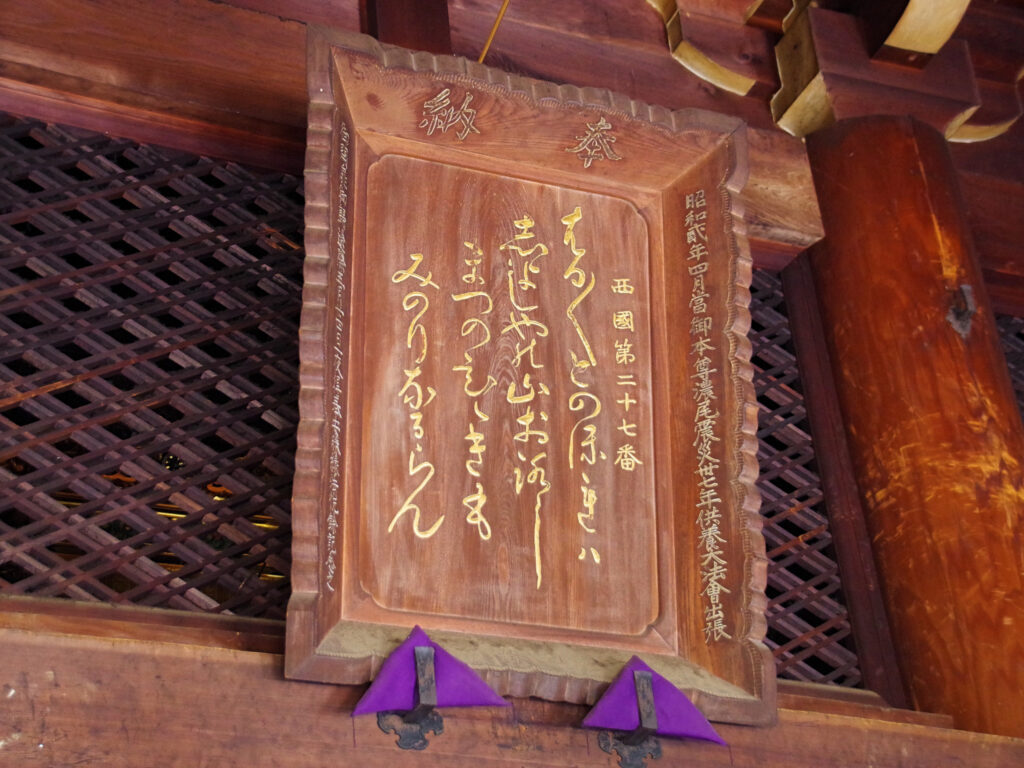 奉納
昭和貳年四月當御本尊濃尾震災卅七年供養大法會出張
西國第二十七番
はる〱とのほれハ
志よしやの山おろし
まつのひゝきも
みのりなるらん